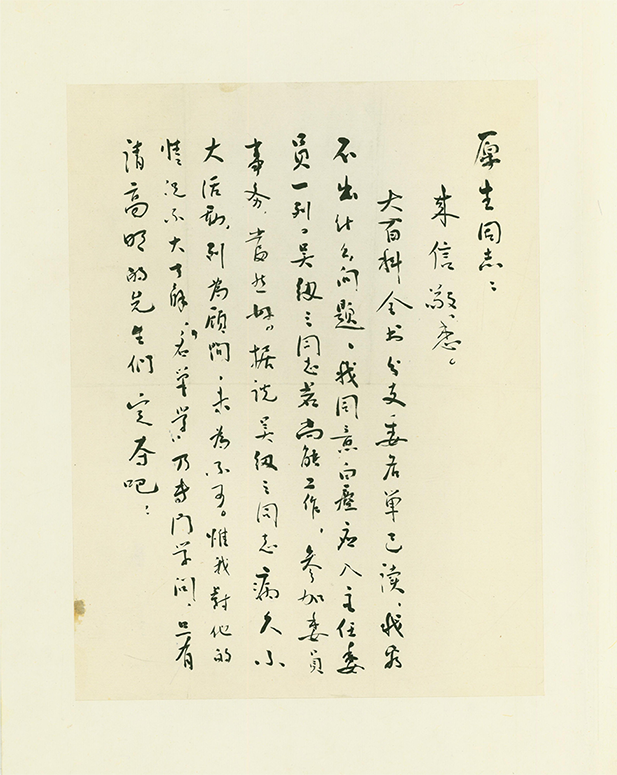 厚生同志：
来信敬悉。
大百科全书分支委名单已读，我看
不出什么问题，我同意白尘应入主任委
员一列。吴纫之同志若尚能工作，参加委员
事务，当然好。据说吴纫之同志病久不
大活动，列为顾问，未为不可。惟我对他的
情况不大了解，“名单学”乃专门学问，只有
请高明的先生们定夺吧！